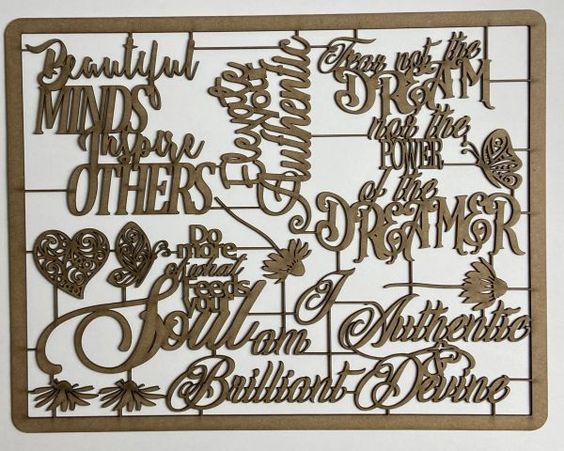 Beautiful
MINDS
Inspire
OTHERS
Elevate
your
Authentic
Fear not the
DREAM
nor the
POWER
of the
DREAMER
Do
more
of what
Feeds
your
Soul
I
am Authentic
Brilliant & Devine